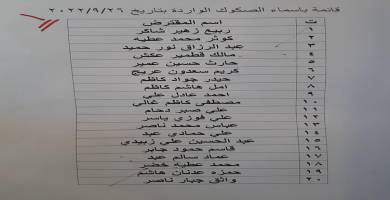 قائمة باسماء الصكوك الواردة بتاريخ ٢٠٢٢/٩/٢٦
ت اسم المقترض
١ ربيع زهير شاكر
٢ كوثر محمد عطيه
٣ عبد الرزاق نور حميد
٤ مالك فطمير عكش
٥ حارث حسين عمير
٦ كريم سعدون عريج
٧ حيدر جواد كاظم
٨ امل هاشم كاظم
٩ احمد عادل علي
١٠ مصطفى كاظم غالي
١١ علي صبر دحام
١٢ علي فوزي ياسر
١٣ عباس محمد ناصر
١٤ علي حمادي عبد
١٥ عبد الحسين علي زبيدي
١٦ قاسم حمود جابر
١٧ عماد سالم عبد
١٨ محمد عطيه خضر
١٩ حمزه عدنان هاشم
٢٠ واثق جبار ناصر